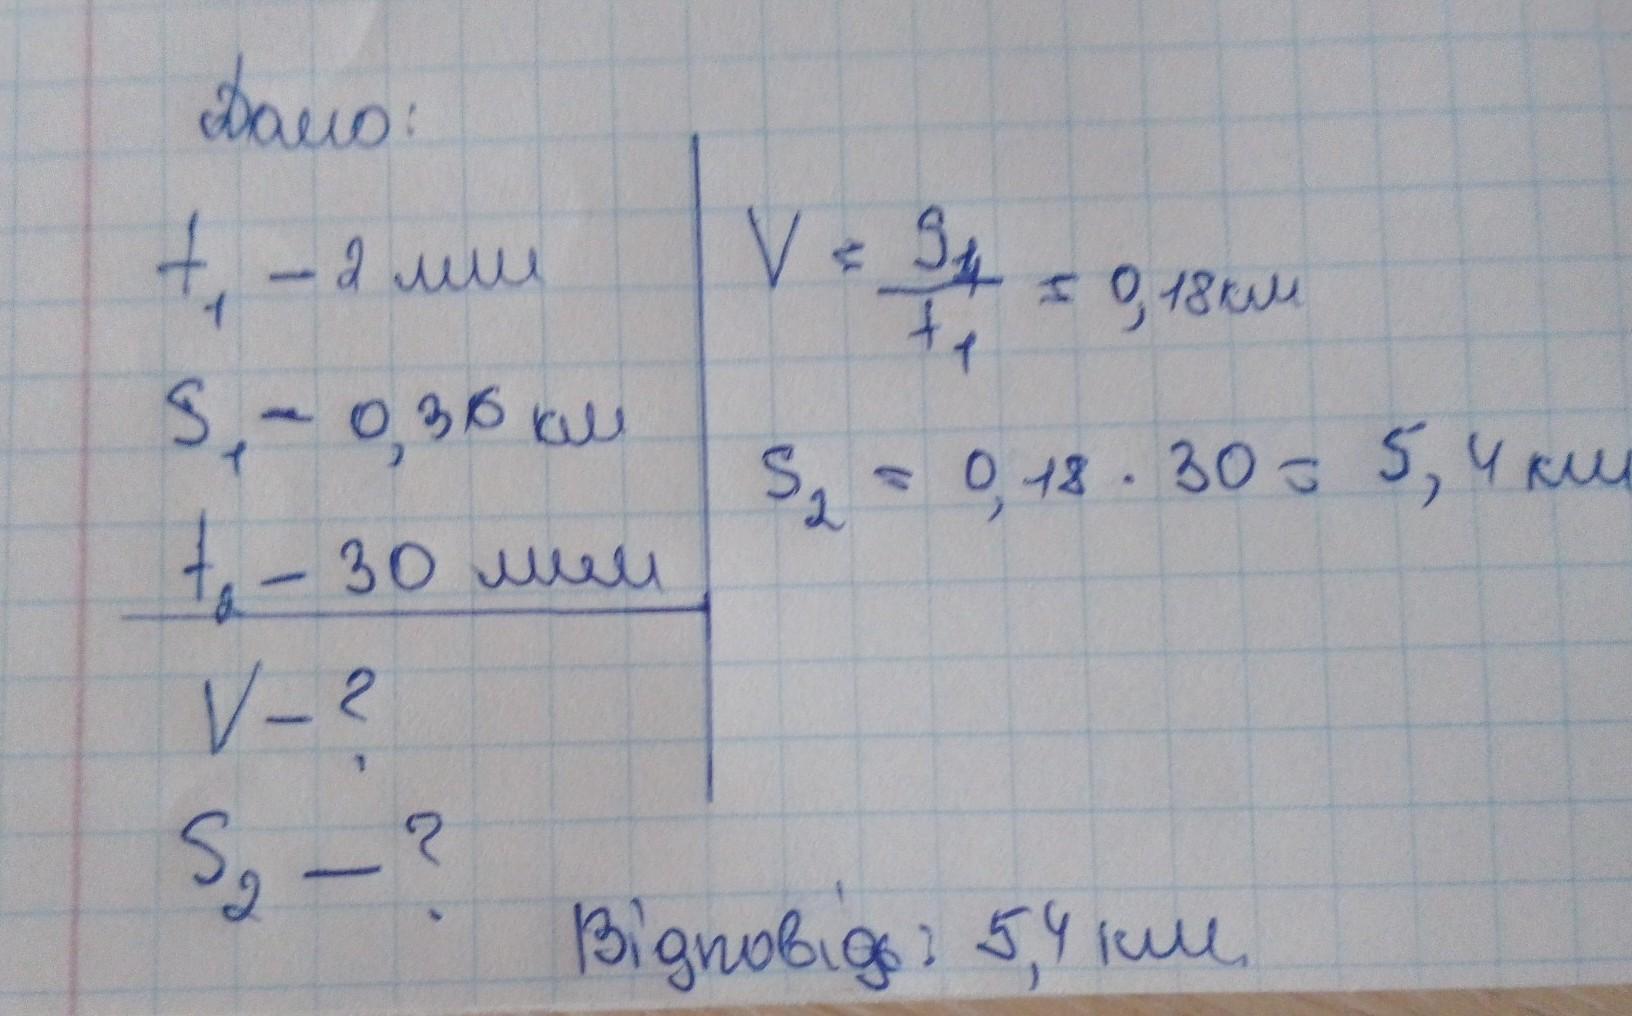 Дано:
t₁ – 2 мин
S₁ – 0,36 км
t₂ – 30 мин
V – ?
S₂ – ?
V = S₁/t₁ = 0,18км
S₂ = 0,18 · 30 = 5,4 км
Відповідь: 5,4 км.